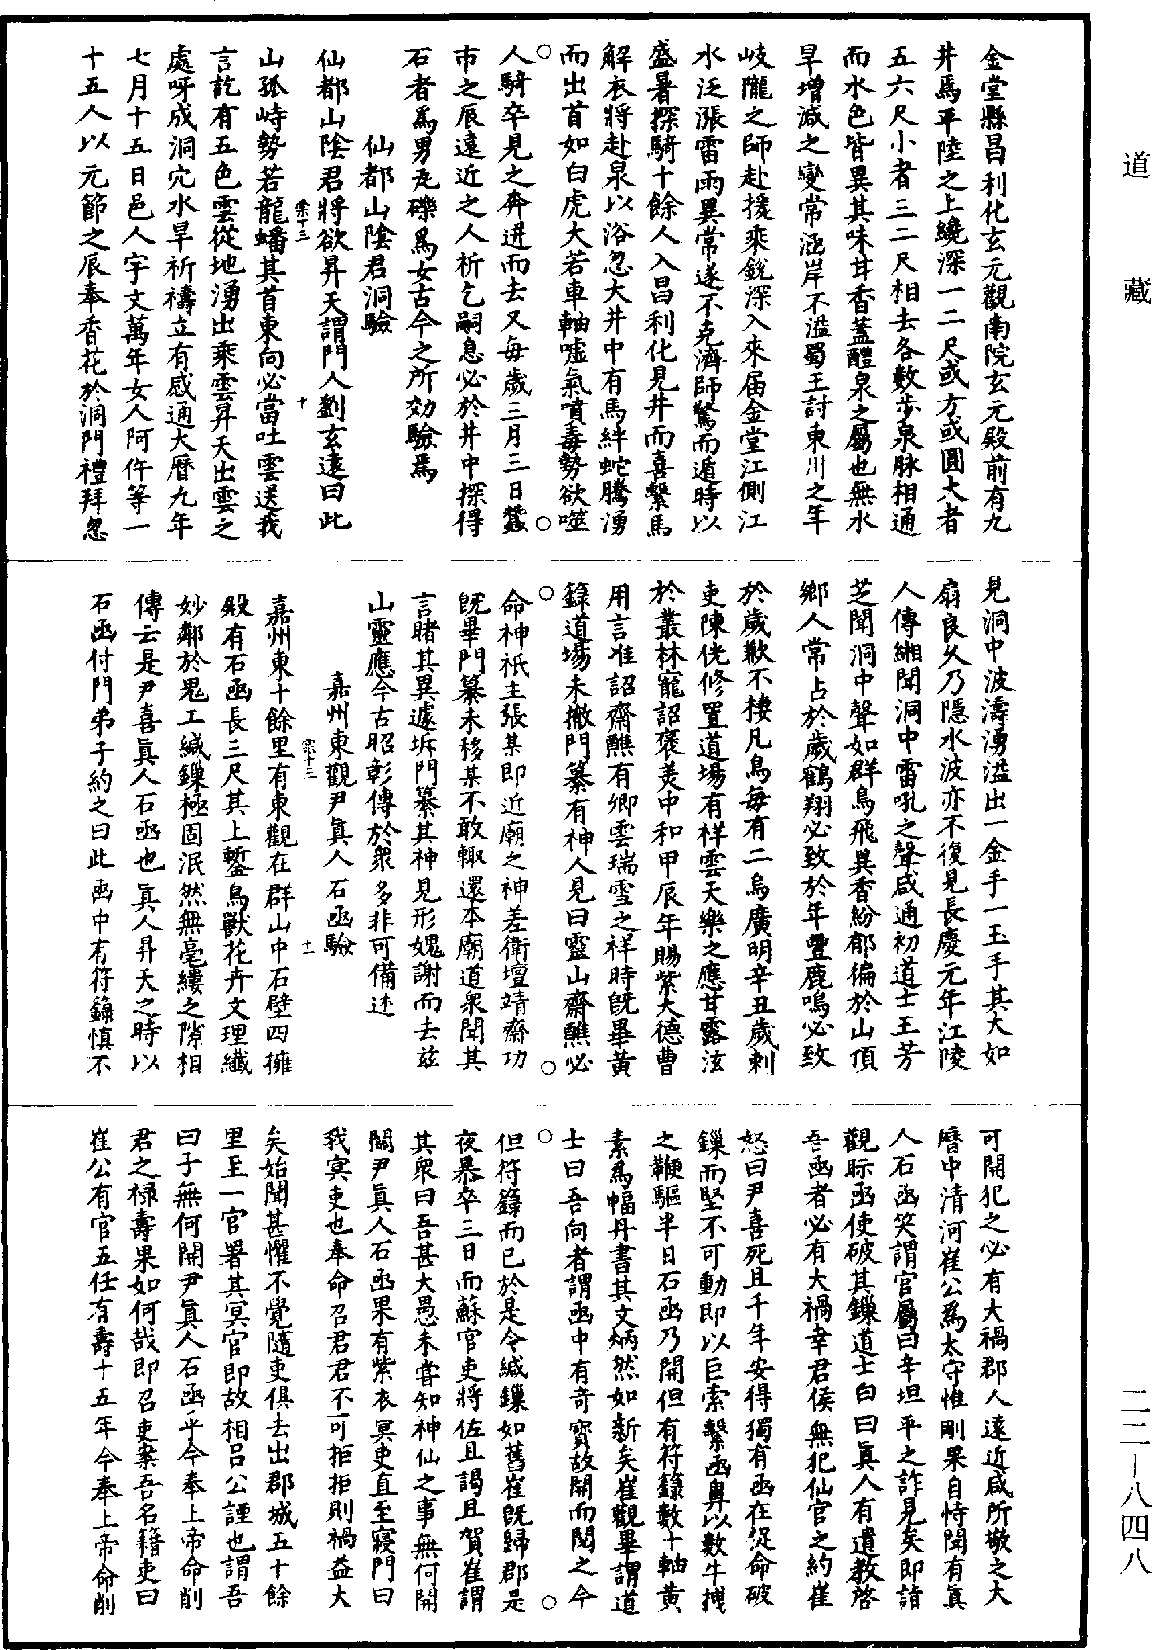 金堂縣昌利化玄元觀南院玄元殿前有九
井焉平陸之上纔深一二尺或方或圓大者
五六尺小者三二尺相去各數步泉脉相通
而水色皆異其味甘香蓋醴泉之屬也無水
旱增減之變常涵岸不溢蜀王討東川之年
岐隴之師赴援乘銳深入來屆金堂江側江
水泛漲雷雨異常遂不克濟師驚而遁時以
盛暑探騎十餘人入昌利化見井而喜繫馬
解衣將赴泉以浴忽大井中有馬絆蛇騰湧
而出首如白虎大若車軸噓氣噴毒勢欲噬
人騎卒見之奔迸而去又每歲三月三日蠶
市之辰遠近之人祈乞嗣息必於井中探得
石者爲男瓦礫爲女古今之所効驗焉
仙都山陰君洞驗
仙都山陰君將欲昇天謂門人劉玄遠曰此
山孤峙勢若龍蟠其首東向必當吐雲送我
言訖有五色雲從地湧出乘雲昇天出雲之
處呀成洞穴水旱祈禱立有感通大曆九年
七月十五日邑人宇文萬年女人阿仵等一
十五人以元節之辰奉香花於洞門禮拜忽
見洞中波濤湧溢出一金手一玉手其大如
扇良久乃隱水波亦不復見長慶元年江陵
人傳緗聞洞中雷吼之聲咸通初道士王芳
芝聞洞中聲如群鳥飛異香紛郁徧於山頂
鄉人常占於歲鶴翔必致於年豐鹿鳴必致
於歲歉不棲凡鳥每有二烏廣明辛丑歲刺
吏陳侊修置道場有祥雲天樂之應甘露泫
於叢林寵詔褒美中和甲辰年賜紫大德曹
用言准詔齋醮有卿雲瑞雪之祥時旣畢黃
籙道場未撤門纂有神人見曰靈山齋醮必
命神祇主張某即近廟之神差衛壇靖齋功
旣畢門纂未移某不敢輙還本廟道衆聞其
言睹其異遽坼門纂其神見形媿謝而去兹
山靈應今古昭彰傳於衆多非可備述
嘉州東觀尹眞人石函驗
嘉州東十餘里有東觀在群山中石壁四擁
殿有石函長三尺其上鏨鳥獸花卉文理纖
妙鄰於鬼工緘鏁極固泯然無毫縷之隙相
傳云是尹喜眞人石函也眞人昇天之時以
石函付門弟子約之曰此函中有符籙慎不
可開犯之必有大禍郡人遠近咸所敬之大
曆中清河崔公爲太守惟剛果自恃聞有眞
人石函笑謂官屬曰辛垣平之詐見矣即詣
觀眎函使破其鏁道士白曰眞人有遺教啓
吾函者必有大禍幸君侯無犯仙官之約崔
怒曰尹喜死且千年安得獨有函在促命破
鏁而堅不可動即以巨索繫函鼻以數牛拽
之鞭驅半日石函乃開但有符籙數十軸黃
素爲幅丹書其文炳然如新矣崔觀畢謂道
士曰吾向者謂函中有奇寶故開而閱之今
但符籙而已於是令緘鏁如舊崔旣歸郡是
夜暴卒三日而蘇官吏將佐且謁且賀崔謂
其衆曰吾甚大愚未嘗知神仙之事無何開
關尹眞人石函果有紫衣冥吏直至寢門曰
我冥吏也奉命召君君不可拒拒則禍益大
矣始聞甚懼不覺隨吏俱去出郡城五十餘
里至一官署其冥官即故相呂公諲也謂吾
曰子無何開尹眞人石函乎今奉上帝命削
君之祿壽果如何哉即召吏案吾名籍吏曰
崔公有官五任有壽十五年今奉上帝命削
道
藏
二二—八四八